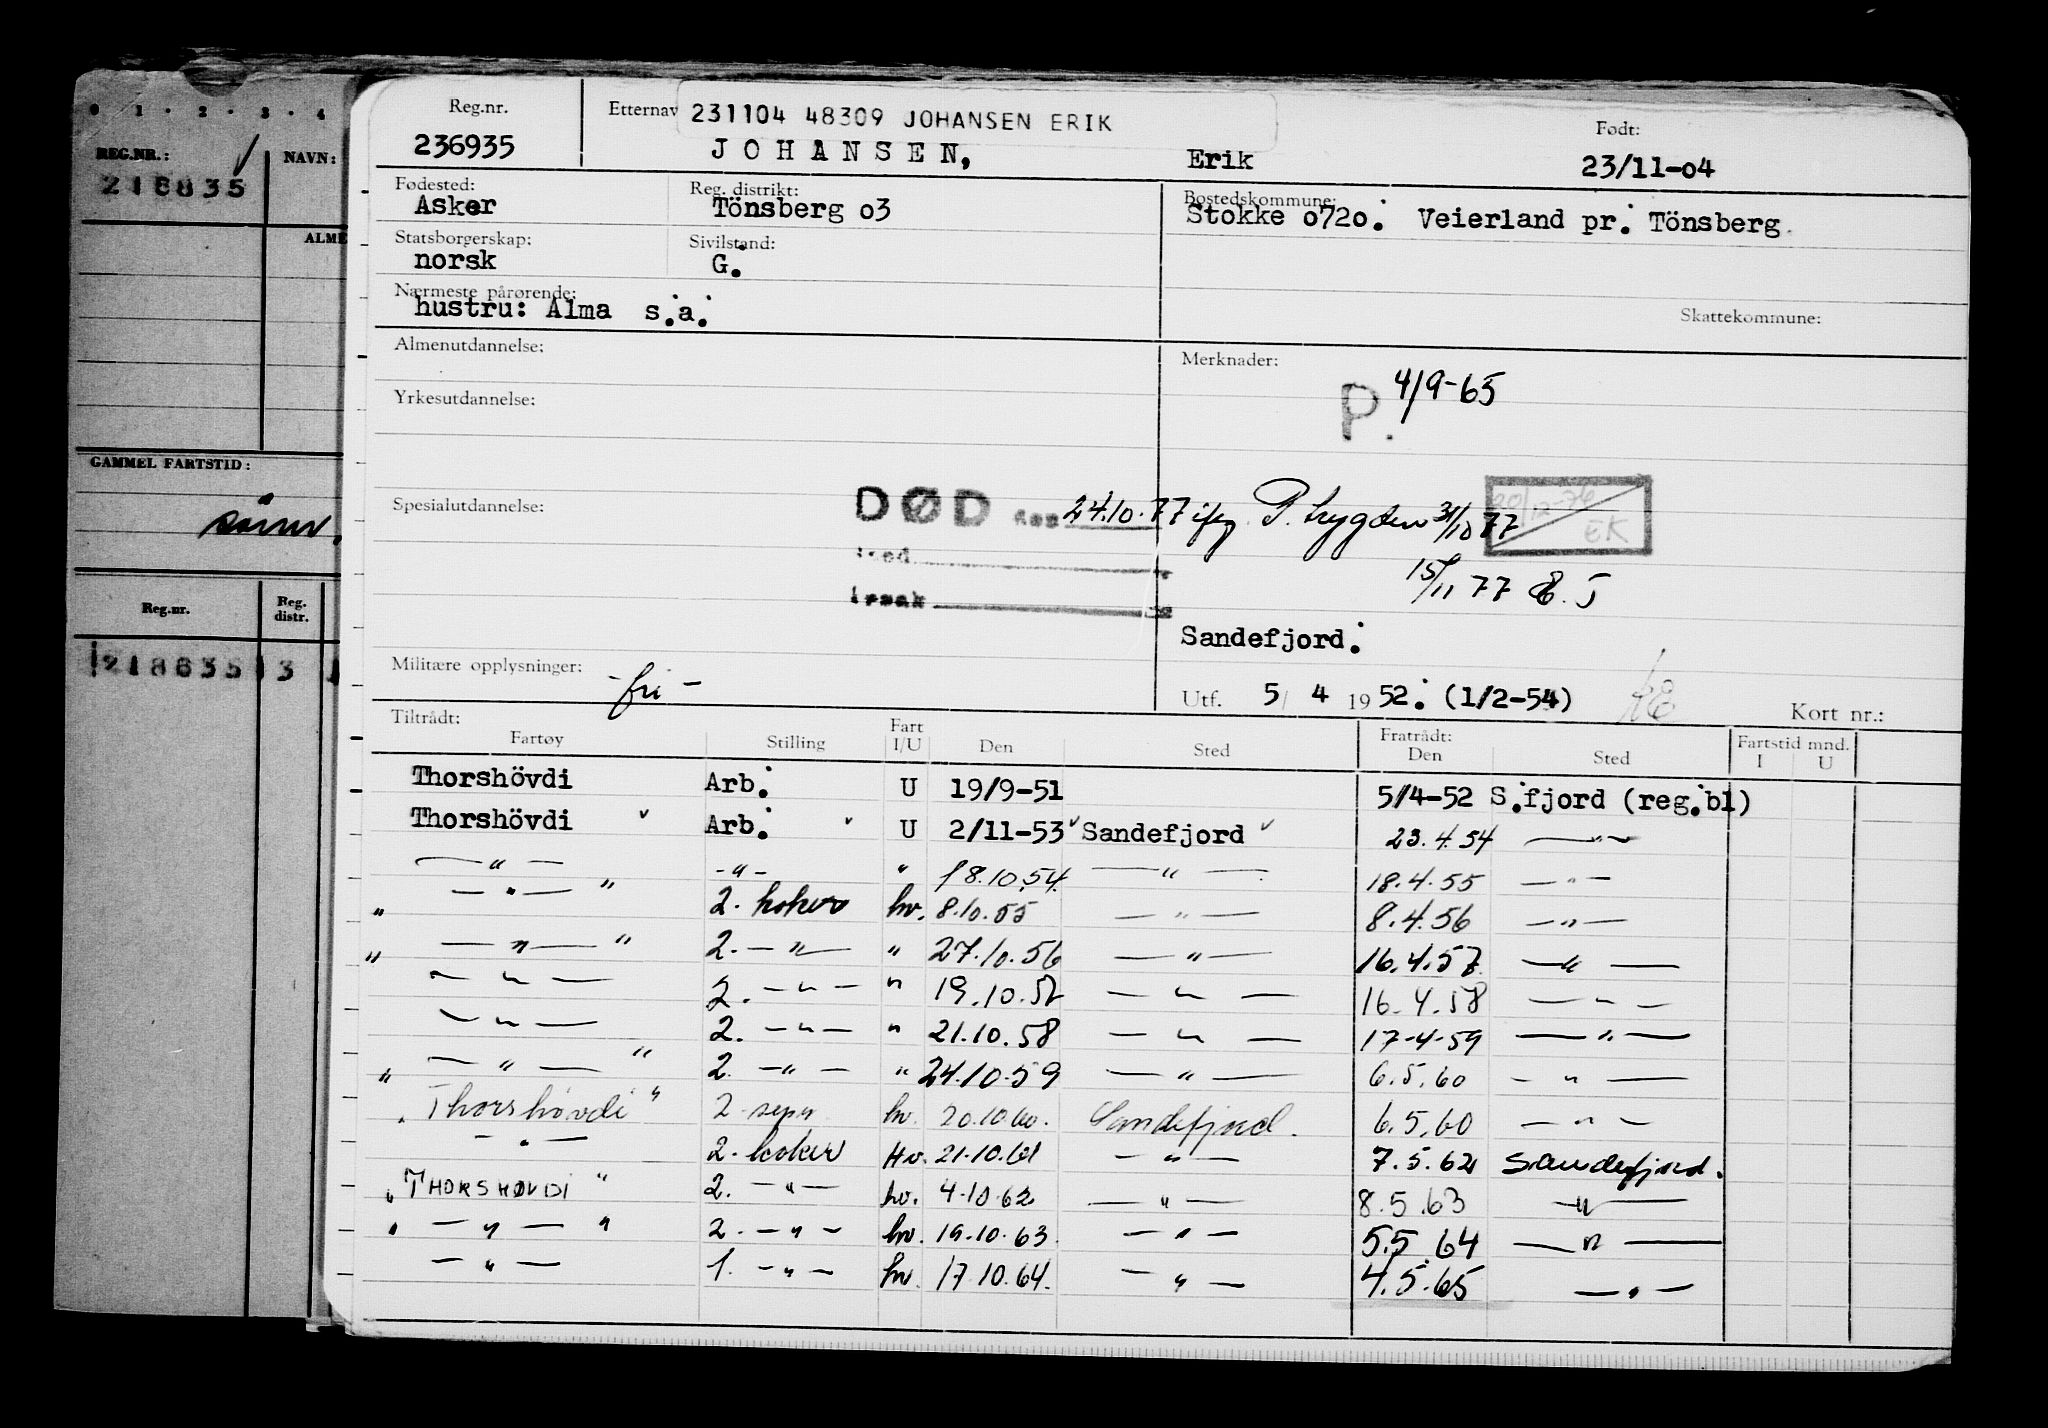 0 1 · 2 · 3 · 4
REG.NR.: NAVN:
218835
ALME
GAMMEL FARTSTID:
Reg.nr. Reg. distr.
218835 3
Reg.nr. Etternav 231104 48309 JOHANSEN ERIK Født:
236935 JOHANSEN, Erik 23/11-04
Fødested: Reg. distrikt: Bostedskommune:
Asker Tönsberg o3 Stokke o72o. Veierland pr. Tönsberg.
Statsborgerskap: Sivilstand:
norsk G.
Nærmeste pårørende:
hustru: Alma s.a. Skattekommune:
Almenutdannelse: Merknader:
P. 4/9-65
Yrkesutdannelse:
Spesialutdannelse: DØD den 24.10.77 31/10 77 20/12-76 EK
sted
15/11 77 E.J
årsak
Sandefjord.
Militære opplysninger: - fri -
Utf. 5/ 4 1952. (1/2-54) Kort nr.:
Tiltrådt: Fart Fratrådt: Fartstid mnd.
Fartøy Stilling I/U Den Sted Den Sted I U
Thorshövdi Arb. U 19/9-51 5/4-52 S.fjord (reg.bl)
Thorshövdi Arb. U 2/11-53 Sandefjord 23.4.54 — " —
— " — - " - " 18.10.54 — " — 18.4.55 — " —
" — " — " 2. koker hv. 8.10.55 — " — 8.4.56 — " —
" — " — " 2. — " — " 27.10.56 — " — 16.4.57 — " —
— " — 2. — " — " 19.10.57 — " — 16.4.58 — " —
— " — 2. — " — " 21.10.58 — " — 17-4-59 — " —
" — " — " 2. — " — " 24.10.59 — " — 6.5.60 — " —
" Thorshövdi " 2 hv. 20.10.60. Sandefjord. 6.5.60 — " —
— " — 2. koker Hv. 21.10.61 — " — 7.5.62 Sandefjord.
" THORSHØVDI " 2. — " — hv. 4.10.62 — " — 8.5.63 — " —
" — " — " 2. — " — hv. 19.10.63. — " — 5.5.64 — " —
— " — 1. — " — hv. 17.10.64. — " — 4.5.65 — " —